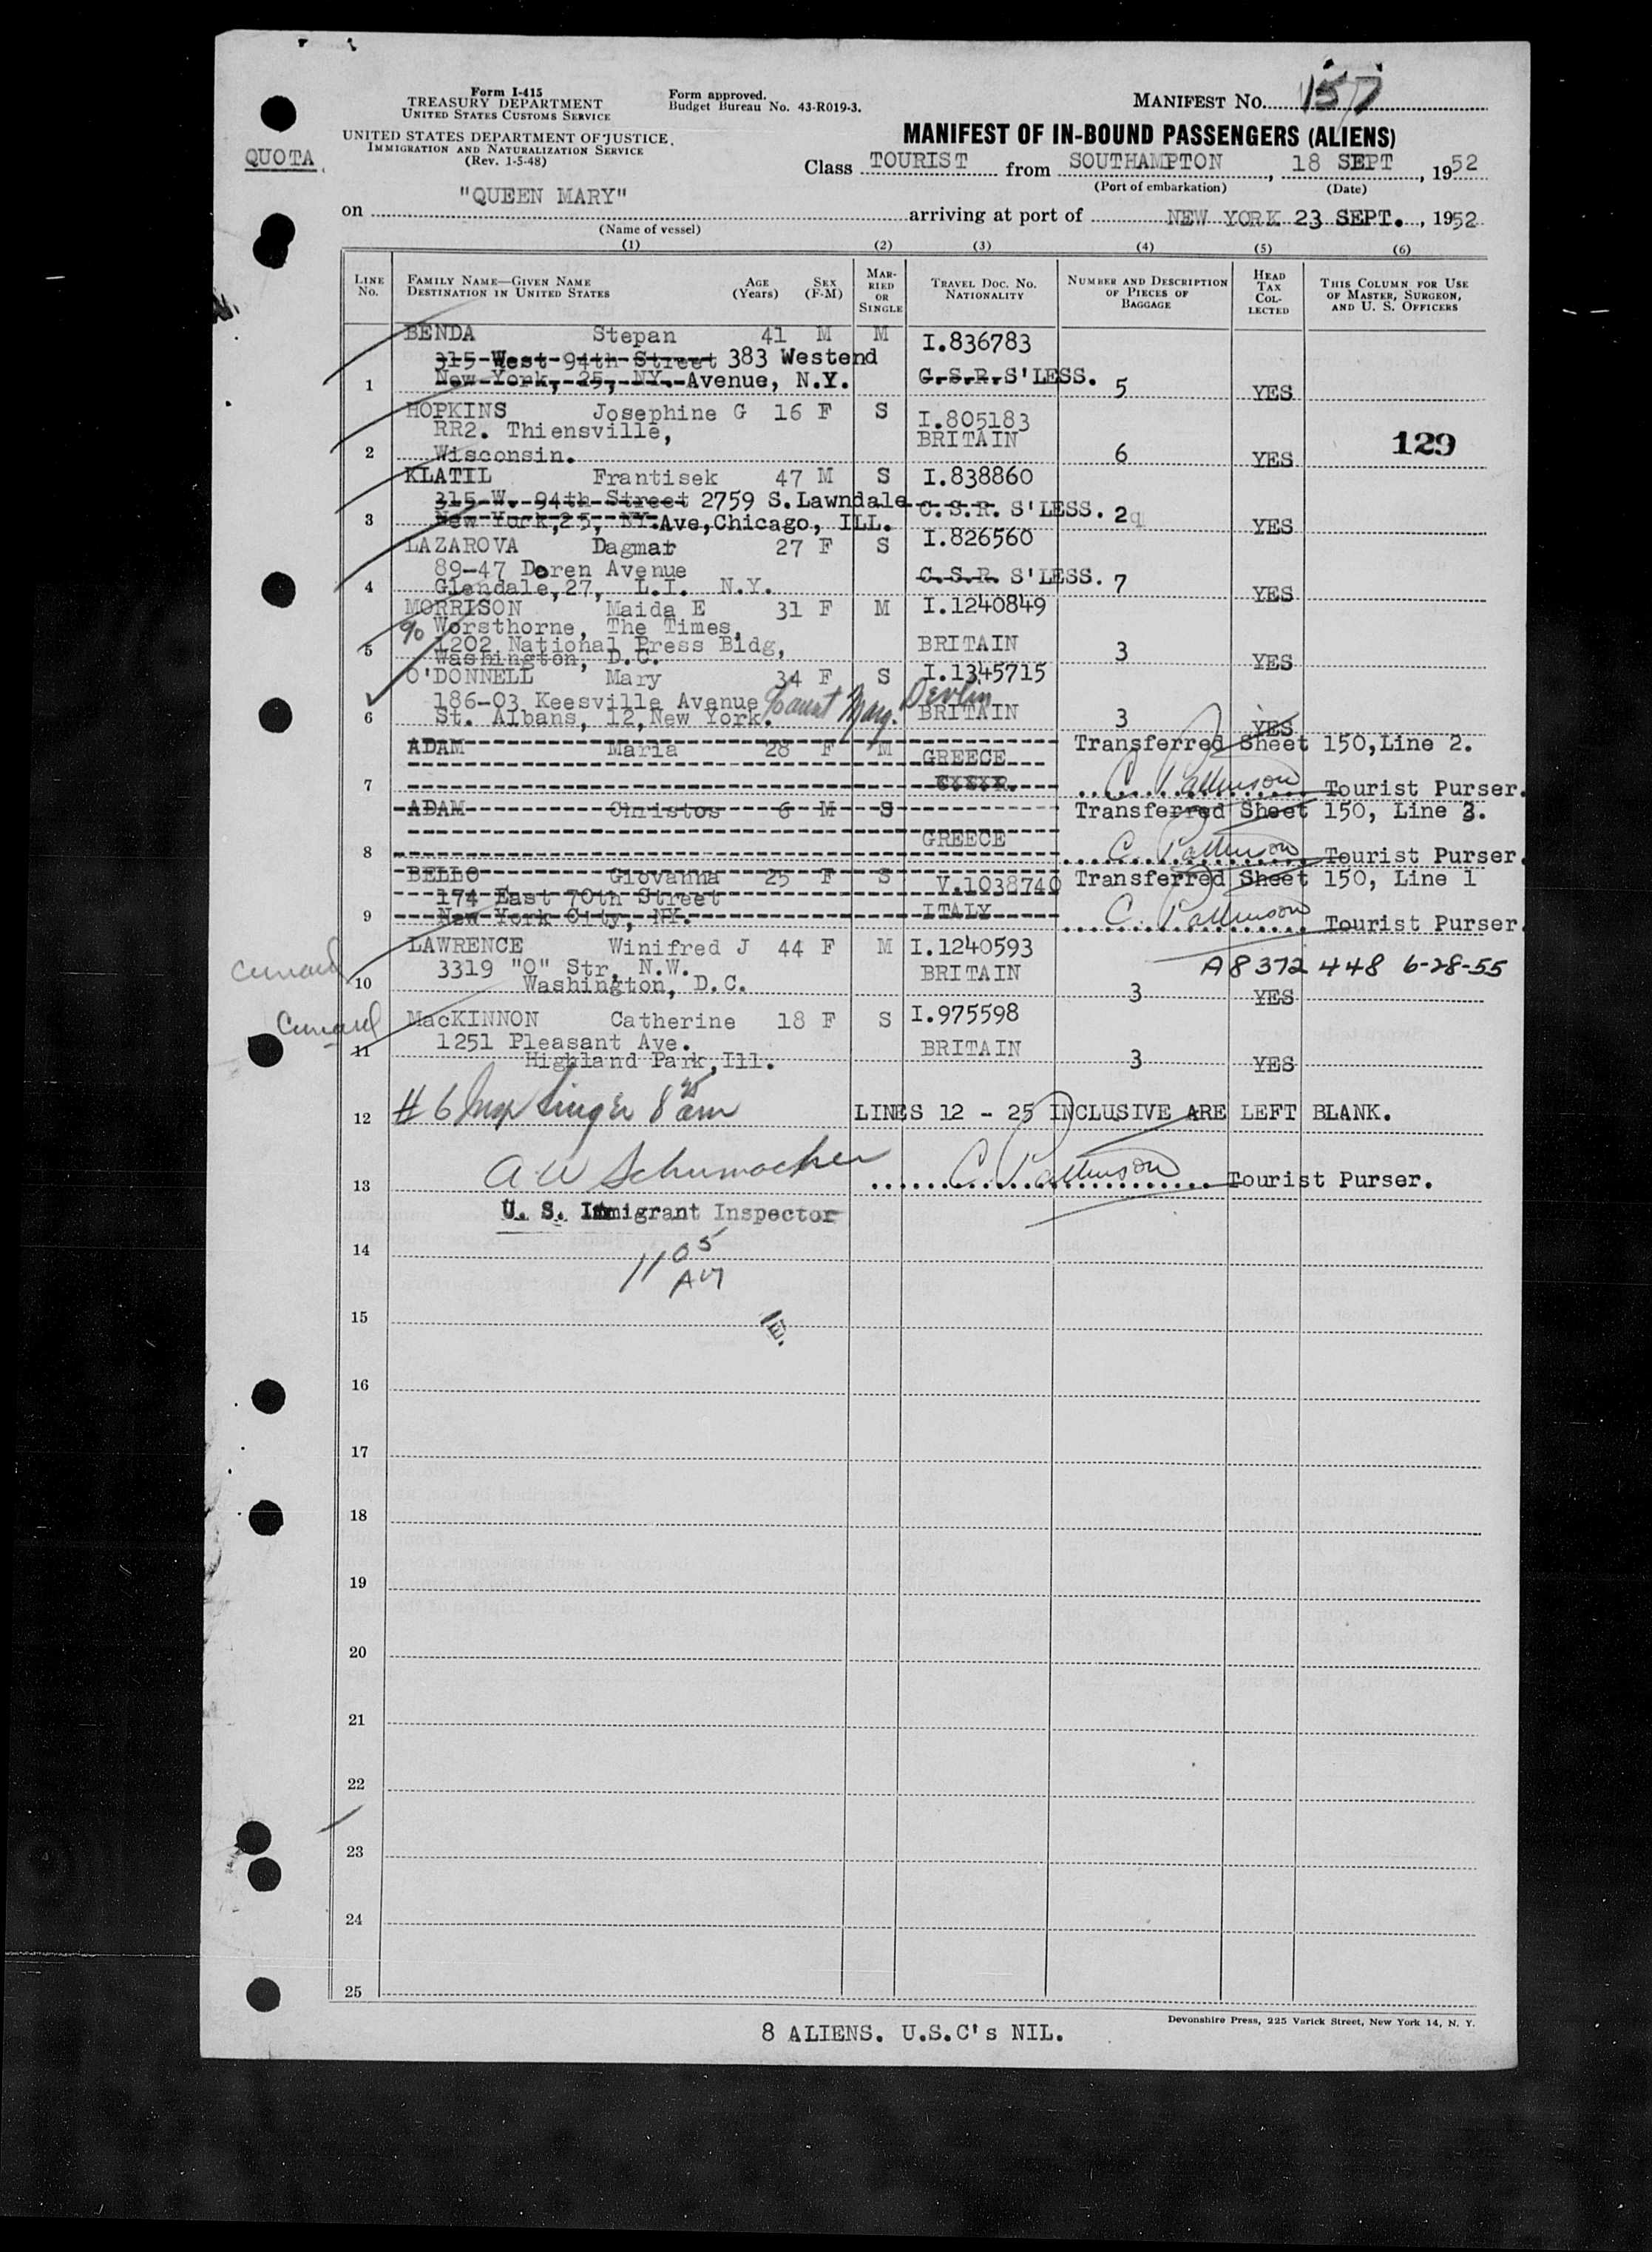 Form I-415
TREASURY DEPARTMENT
UNITED STATES CUSTOMS SERVICE
UNITED STATES DEPARTMENT OF JUSTICE
IMMIGRATION AND NATURALIZATION SERVICE
(Rev. 1-5-48)
Form approved.
Budget Bureau No. 43-R019-3.
MANIFEST No. 157
QUOTA
MANIFEST OF IN-BOUND PASSENGERS (ALIENS)
Class TOURIST from SOUTHAMPTON, 18 SEPT, 1952
(Port of embarkation) (Date)
on "QUEEN MARY" arriving at port of NEW YORK 23 SEPT., 1952
(Name of vessel)
(1) (2) (3) (4) (5) (6)
LINE No. FAMILY NAME—GIVEN NAME DESTINATION IN UNITED STATES AGE (Years) SEX (F-M) MARRIED OR SINGLE TRAVEL DOC. No. NATIONALITY NUMBER AND DESCRIPTION OF PIECES OF BAGGAGE HEAD TAX COLLECTED THIS COLUMN FOR USE OF MASTER, SURGEON, AND U. S. OFFICERS
BENDA Stepan 41 M M I.836783
315 West 94th Street 383 Westend
1 New York, 25, NY. Avenue, N.Y. C.S.R. S'LESS. 5 YES
HOPKINS Josephine G 16 F S I.805183
RR2. Thiensville, BRITAIN
2 Wisconsin. 6 YES 129
KLATIL Frantisek 47 M S I.838860
315 W. 94th Street 2759 S. Lawndale
3 New York, 25, NY. Ave, Chicago, ILL. C.S.R. S'LESS. 2 YES
LAZAROVA Dagmar 27 F S I.826560
89-47 Doren Avenue C.S.R. S'LESS. 7
4 Glendale, 27, L.I. N.Y. YES
MORRISON Maida E 31 F M I.1240849
% Worsthorne, The Times,
5 1202 National Press Bldg, BRITAIN 3 YES
Washington, D.C.
O'DONNELL Mary 34 F S I.1345715
186-03 Keesville Avenue aunt Mary. Devlin
6 St. Albans, 12, New York. BRITAIN 3 YES
ADAM Maria 28 F M GREECE Transferred Sheet 150, Line 2.
7 C. Pattinson Tourist Purser.
ADAM Christos 6 M S Transferred Sheet 150, Line 3.
8 GREECE C. Pattinson Tourist Purser.
BELLO Giovanna 25 F S V.1038740 Transferred Sheet 150, Line 1
174 East 70th Street
9 New York City, NY. ITALY C. Pattinson Tourist Purser.
LAWRENCE Winifred J 44 F M I.1240593
Cunard 3319 "O" Str, N.W. BRITAIN A8 372 448 6-28-55
10 Washington, D.C. 3 YES
Cunard MacKINNON Catherine 18 F S I.975598
1251 Pleasant Ave. BRITAIN
11 Highland Park, Ill. 3 YES
12 # 6 Insp Singer 8 am LINES 12 - 25 INCLUSIVE ARE LEFT BLANK.
13 A W Schumacher C. Pattinson Tourist Purser.
U. S. Immigrant Inspector
14 1105
AM
15
16
17
18
19
20
21
22
23
24
25
8 ALIENS. U.S.C's NIL.
Devonshire Press, 225 Varick Street, New York 14, N. Y.